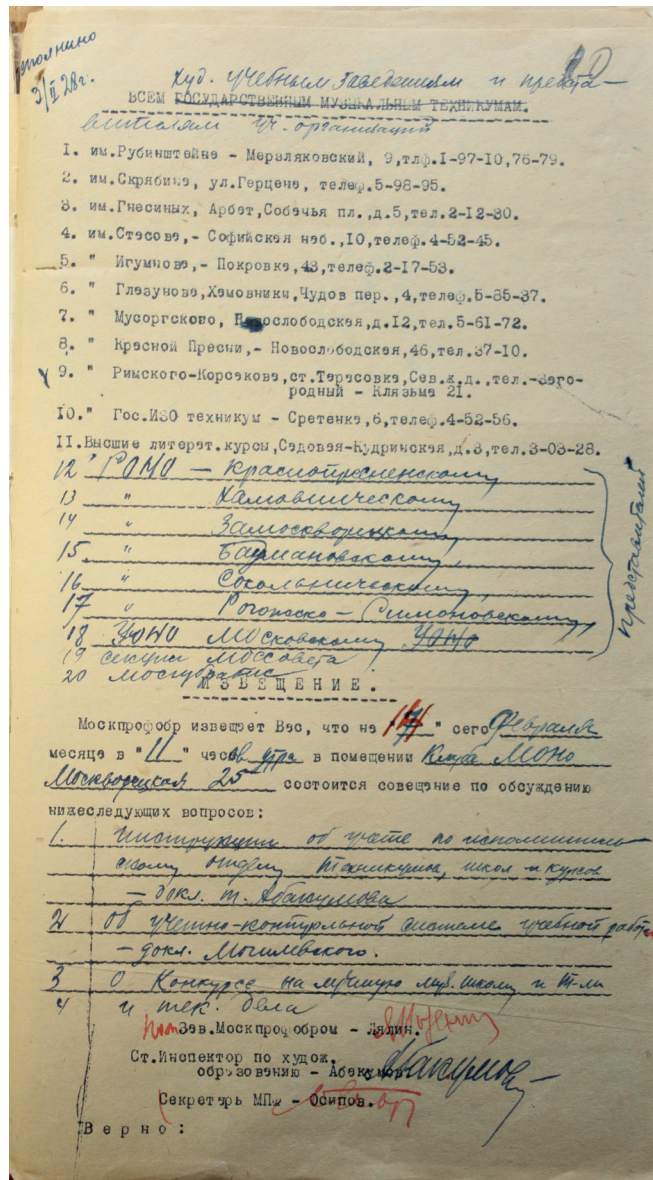 3/II 28г.
худ. учебным заведениям и предста-
ВСЕМ ГОСУДАРСТВЕННЫМ МУЗЫКАЛЬНЫМ ТЕХНИКУМАМ.
вителям уч. организаций
I. им.Рубинштейна - Мерзляковский, 9,тлф.I-97-I0,76-79.
2. им.Скрябина, ул.Герцена, телеф.5-98-95.
3. им.Гнесиных, Арбат,Собачья пл.,д.5,тел.2-I2-30.
4. им.Стасова,- Софийская наб.,I0,телеф.4-52-45.
5. " Игумнова,- Покровка,43,телеф.2-I7-53.
6. " Глазунова,Хамовники,Чудов пер.,4,телеф.5-85-37.
7. " Мусоргского, Новослободская,д.I2,тел.5-6I-72.
8. " Красной Пресни,- Новослободская,46,тел.37-I0.
9. " Римского-Корсакова,ст.Тарасовка,Сев.ж.д.,тел.-Заго-
родный - Клязьма 2I.
I0." Гос.ИЗО техникум - Сретенка,6,телеф.4-52-56.
II.Высшие литерат.курсы,Садовая-Кудринская,д.3,тел.3-03-28.
12 " РОНО - Краснопресненскому
13 " Хамовническому
14 " Замоскворецкому
15 " Баумановскому
16 " Сокольническому
17 " Рогожско-Симоновскому
18 УОНО Московскому УОНО
представителям
19 секции Моссовета
20
ИЗВЕЩЕНИЕ.
Москпрофобр извещает Вас, что на " " сего февраля
месяца в "11" часов утра в помещении Клуба МОНО
Москворецкая 25 состоится совещание по обсуждению
нижеследующих вопросов:
1. Инструкции об учете по исполнитель-
скому отделу техникумов, школ и курсов
- докл. т. Абакумова
2 Об учетно-контрольной системе учебной работы
- докл. Могилевского.
3 О Конкурсе на лучшую муз. школу и т-м
4 и тек. дела
Зав.Москпрофобром - Лядин.
Ст.Инспектор по худож.
образованию - Абакумов
Секретарь МПФ - Осипов.
Верно: